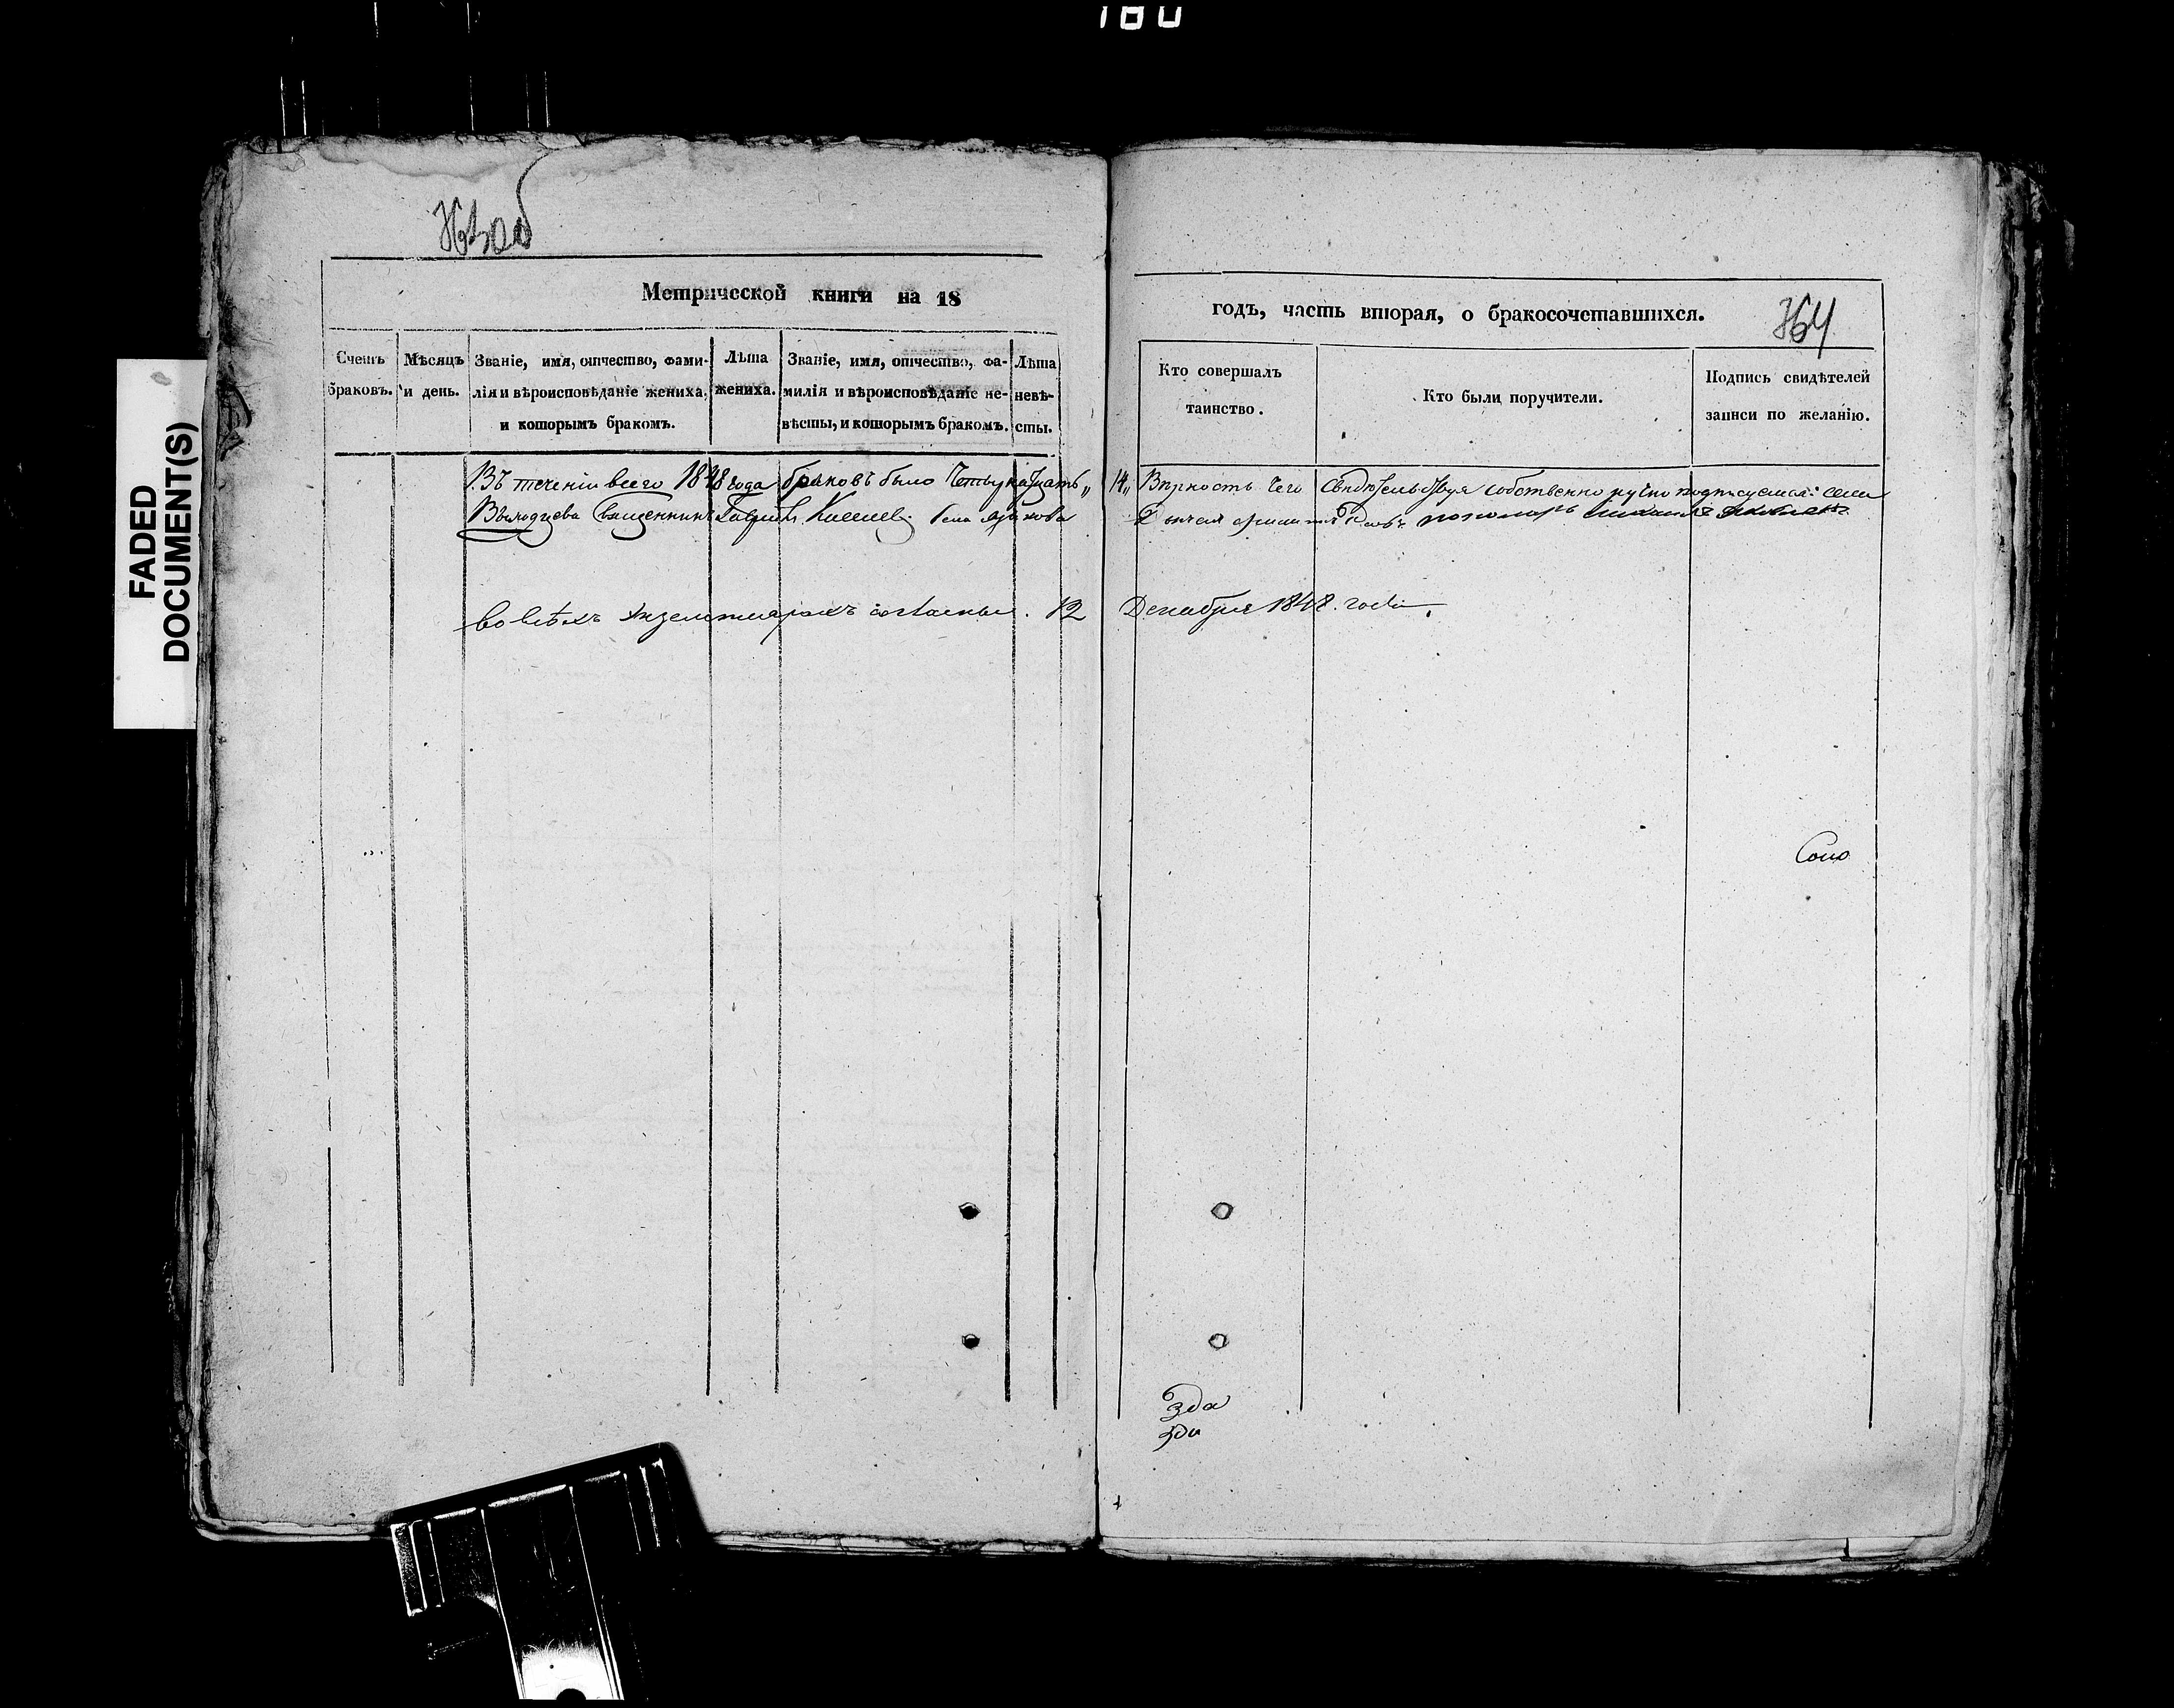 180
FADED
DOCUMENT(S)
Метрической книги на 18
годъ, часть вторая, о бракосочетавшихся.
364
Счетъ браковъ.
Мѣсяцъ и день.
Званіе, имя, отчество, фами-
лія и вѣроисповѣданіе жениха,
и которымъ бракомъ.
Лѣта
жениха.
Званіе, имя, отчество, фа-
милія и вѣроисповѣданіе не-
вѣсты, и которымъ бракомъ.
Лѣта
невѣ-
сты.
Кто совершалъ
таинство.
Кто были поручители.
Подпись свидѣтелей
записи по желанію.
Въ теченіи всего 1848 года браковъ было Четырнадцать „14„ Вѣрность чего свидѣтельствуя собственно ручно подписуемся: села
Священникъ Гавріилъ пономарь
во всѣхъ экземплярахъ согласны. 12 Декабря 1848. года.
Сою
зда
зда